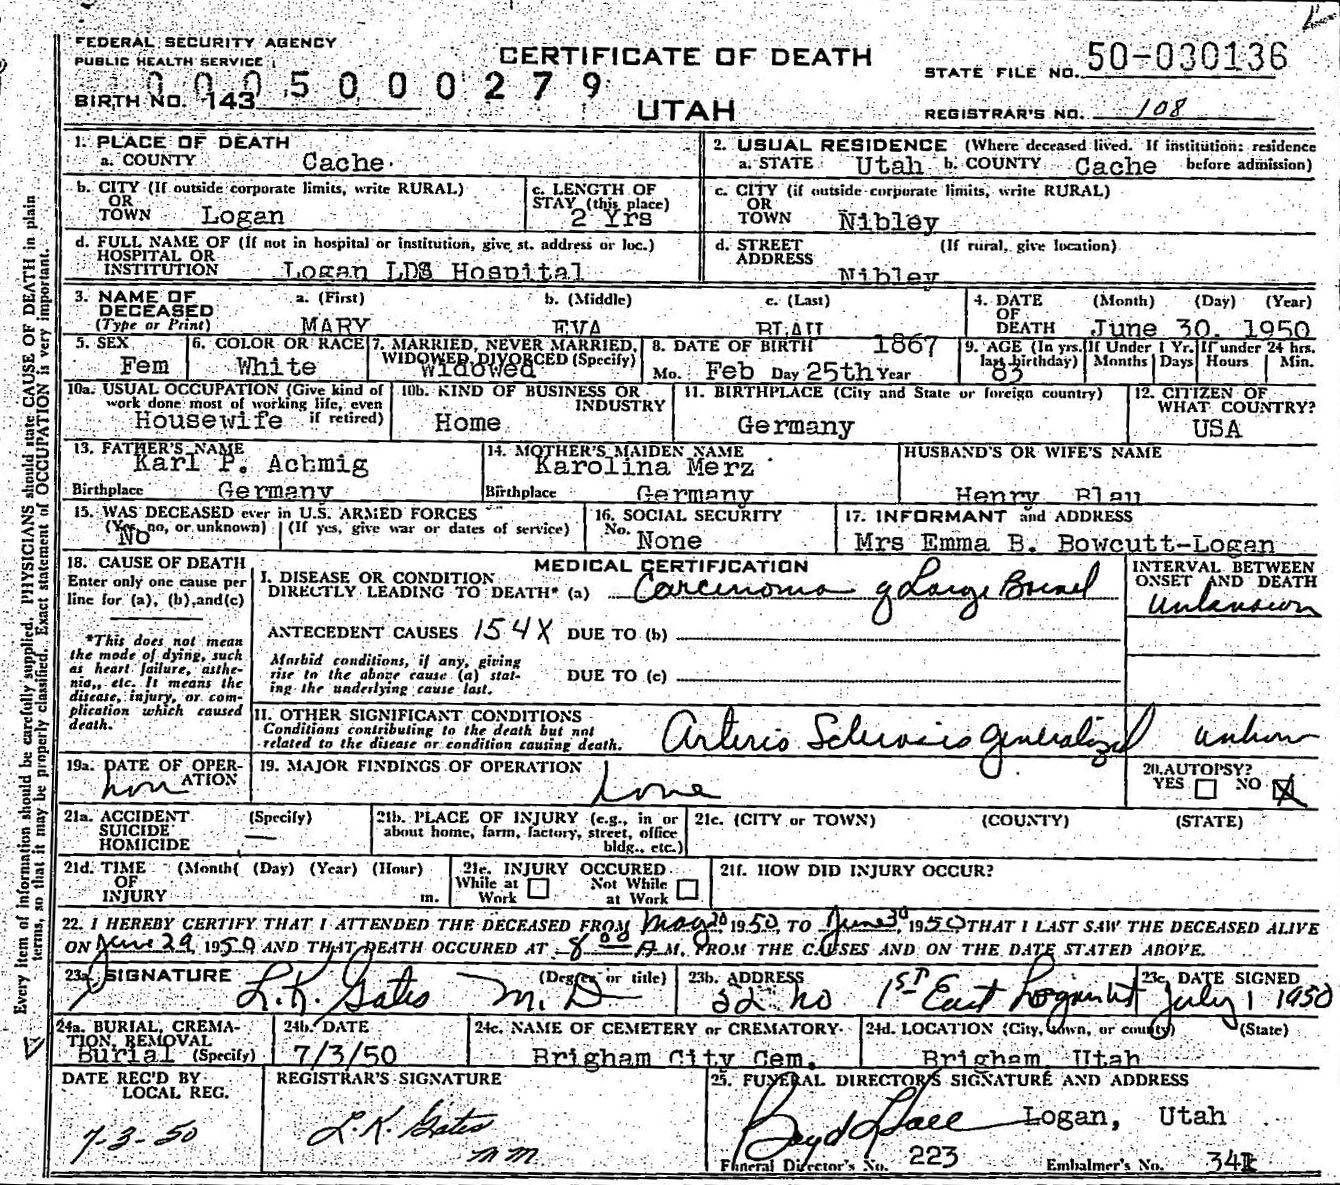 FEDERAL SECURITY AGENCY
PUBLIC HEALTH SERVICE
CERTIFICATE OF DEATH
STATE FILE NO. 50-030136
0005000279
BIRTH NO. 143
UTAH
REGISTRAR'S NO. 108
1. PLACE OF DEATH
a. COUNTY Cache
2. USUAL RESIDENCE (Where deceased lived. If institution: residence before admission)
a. STATE Utah b. COUNTY Cache
b. CITY (If outside corporate limits, write RURAL)
OR
TOWN Logan
c. LENGTH OF
STAY (this place)
2 Yrs
c. CITY (if outside corporate limits, write RURAL)
OR
TOWN Nibley
d. FULL NAME OF (If not in hospital or institution, give st. address or loc.)
HOSPITAL OR
INSTITUTION Logan LDS Hospital
d. STREET (If rural, give location)
ADDRESS Nibley
3. NAME OF
DECEASED
(Type or Print)
a. (First) b. (Middle) c. (Last)
MARY EVA BLAU
4. DATE (Month) (Day) (Year)
OF
DEATH June 30, 1950
5. SEX
Fem
6. COLOR OR RACE
White
7. MARRIED, NEVER MARRIED,
WIDOWED, DIVORCED (Specify)
Widowed
8. DATE OF BIRTH 1867
Mo. Feb Day 25th Year
9. AGE (In yrs. last birthday) 83
If Under 1 Yr. Months Days
If under 24 hrs. Hours Min.
10a. USUAL OCCUPATION (Give kind of
work done most of working life, even
if retired) Housewife
10b. KIND OF BUSINESS OR
INDUSTRY
Home
11. BIRTHPLACE (City and State or foreign country)
Germany
12. CITIZEN OF
WHAT COUNTRY?
USA
13. FATHER'S NAME
Karl P. Achmig
Birthplace Germany
14. MOTHER'S MAIDEN NAME
Karolina Merz
Birthplace Germany
HUSBAND'S OR WIFE'S NAME
Henry Blau
15. WAS DECEASED ever in U.S. ARMED FORCES
(Yes, no, or unknown) (If yes, give war or dates of service)
No
16. SOCIAL SECURITY
No. None
17. INFORMANT and ADDRESS
Mrs Emma B. Bowcutt-Logan
18. CAUSE OF DEATH
Enter only one cause per
line for (a), (b), and (c)
*This does not mean
the mode of dying, such
as heart failure, asthe-
nia,, etc. It means the
disease, injury, or com-
plication which caused
death.
MEDICAL CERTIFICATION
I. DISEASE OR CONDITION
DIRECTLY LEADING TO DEATH* (a) Carcinoma of Large Bowel
INTERVAL BETWEEN
ONSET AND DEATH
unknown
ANTECEDENT CAUSES 154X DUE TO (b)
Morbid conditions, if any, giving
rise to the above cause (a) stat-
ing the underlying cause last.
DUE TO (c)
II. OTHER SIGNIFICANT CONDITIONS
Conditions contributing to the death but not
related to the disease or condition causing death.
Arterio Sclerosis generalized
19a. DATE OF OPER-
ATION
19. MAJOR FINDINGS OF OPERATION
20. AUTOPSY?
YES NO X
21a. ACCIDENT (Specify)
SUICIDE
HOMICIDE
21b. PLACE OF INJURY (e.g., in or
about home, farm, factory, street, office
bldg., etc.)
21c. (CITY or TOWN) (COUNTY) (STATE)
21d. TIME (Month( (Day) (Year) (Hour)
OF
INJURY m.
21e. INJURY OCCURED
While at Work Not While at Work
21f. HOW DID INJURY OCCUR?
22. I HEREBY CERTIFY THAT I ATTENDED THE DECEASED FROM May 20 1950, TO June 30, 1950 THAT I LAST SAW THE DECEASED ALIVE
ON June 29, 1950 AND THAT DEATH OCCURED AT 8 00 A.M. FROM THE CAUSES AND ON THE DATE STATED ABOVE.
23a. SIGNATURE (Degree or title)
L.K. Gates M.D
23b. ADDRESS
32 no 1st East Logan Ut
23c. DATE SIGNED
July 1 1950
24a. BURIAL, CREMA-
TION, REMOVAL
Burial (Specify)
24b. DATE
7/3/50
24c. NAME OF CEMETERY or CREMATORY
Brigham City Cem.
24d. LOCATION (City, town, or county) (State)
Brigham, Utah
DATE REC'D BY
LOCAL REG.
7-3-50
REGISTRAR'S SIGNATURE
L.K. Gates
25. FUNERAL DIRECTOR'S SIGNATURE AND ADDRESS
Logan, Utah
Funeral Director's No. 223 Embalmer's No.
Every item of information should be carefully supplied. PHYSICIANS should state CAUSE OF DEATH in plain
terms, so that it may be properly classified. Exact statement of OCCUPATION is very important.